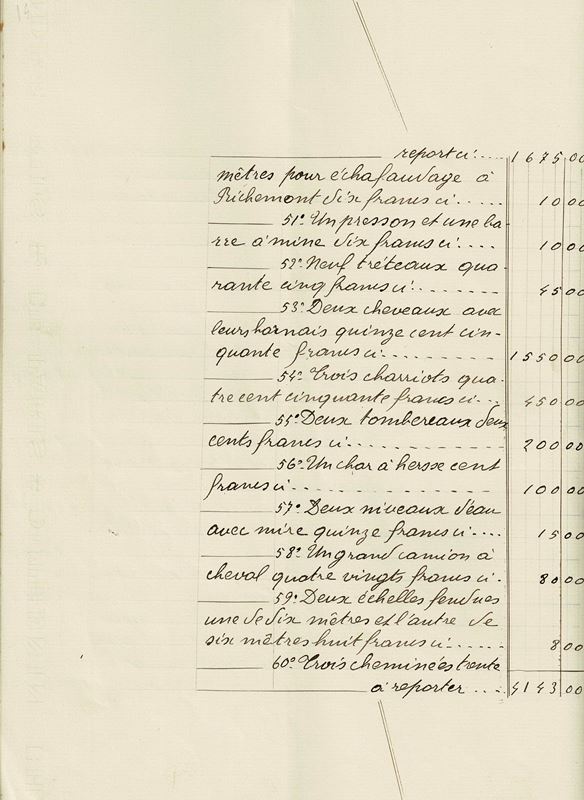 report ci.... 1675 00
mètres pour échafaudage à
Richemont dix francs ci..... 10 00
51° Un presson et une ba-
rre à mine dix francs ci.... 10 00
52° Neuf tréteaux qua-
rante cinq francs ci........ 45 00
53° Deux cheveaux avec
leurs harnais quinze cent cin-
quante francs ci.......... 1550 00
54° Trois charriots qua-
tre cent cinquante francs ci... 450 00
55° Deux tombereaux deux
cents francs ci............ 200 00
56° Un char à hersse cent
francs ci................ 100 00
57° Deux niveaux d'eau
avec mire quinze francs ci.... 15 00
58° Un grand camion à
cheval quatre vingts francs ci. 80 00
59° Deux échelles fendues
une de dix mètres et l'autre de
six mètres huit francs ci...... 8 00
60° Trois cheminées trente
à reporter.... 4143 00